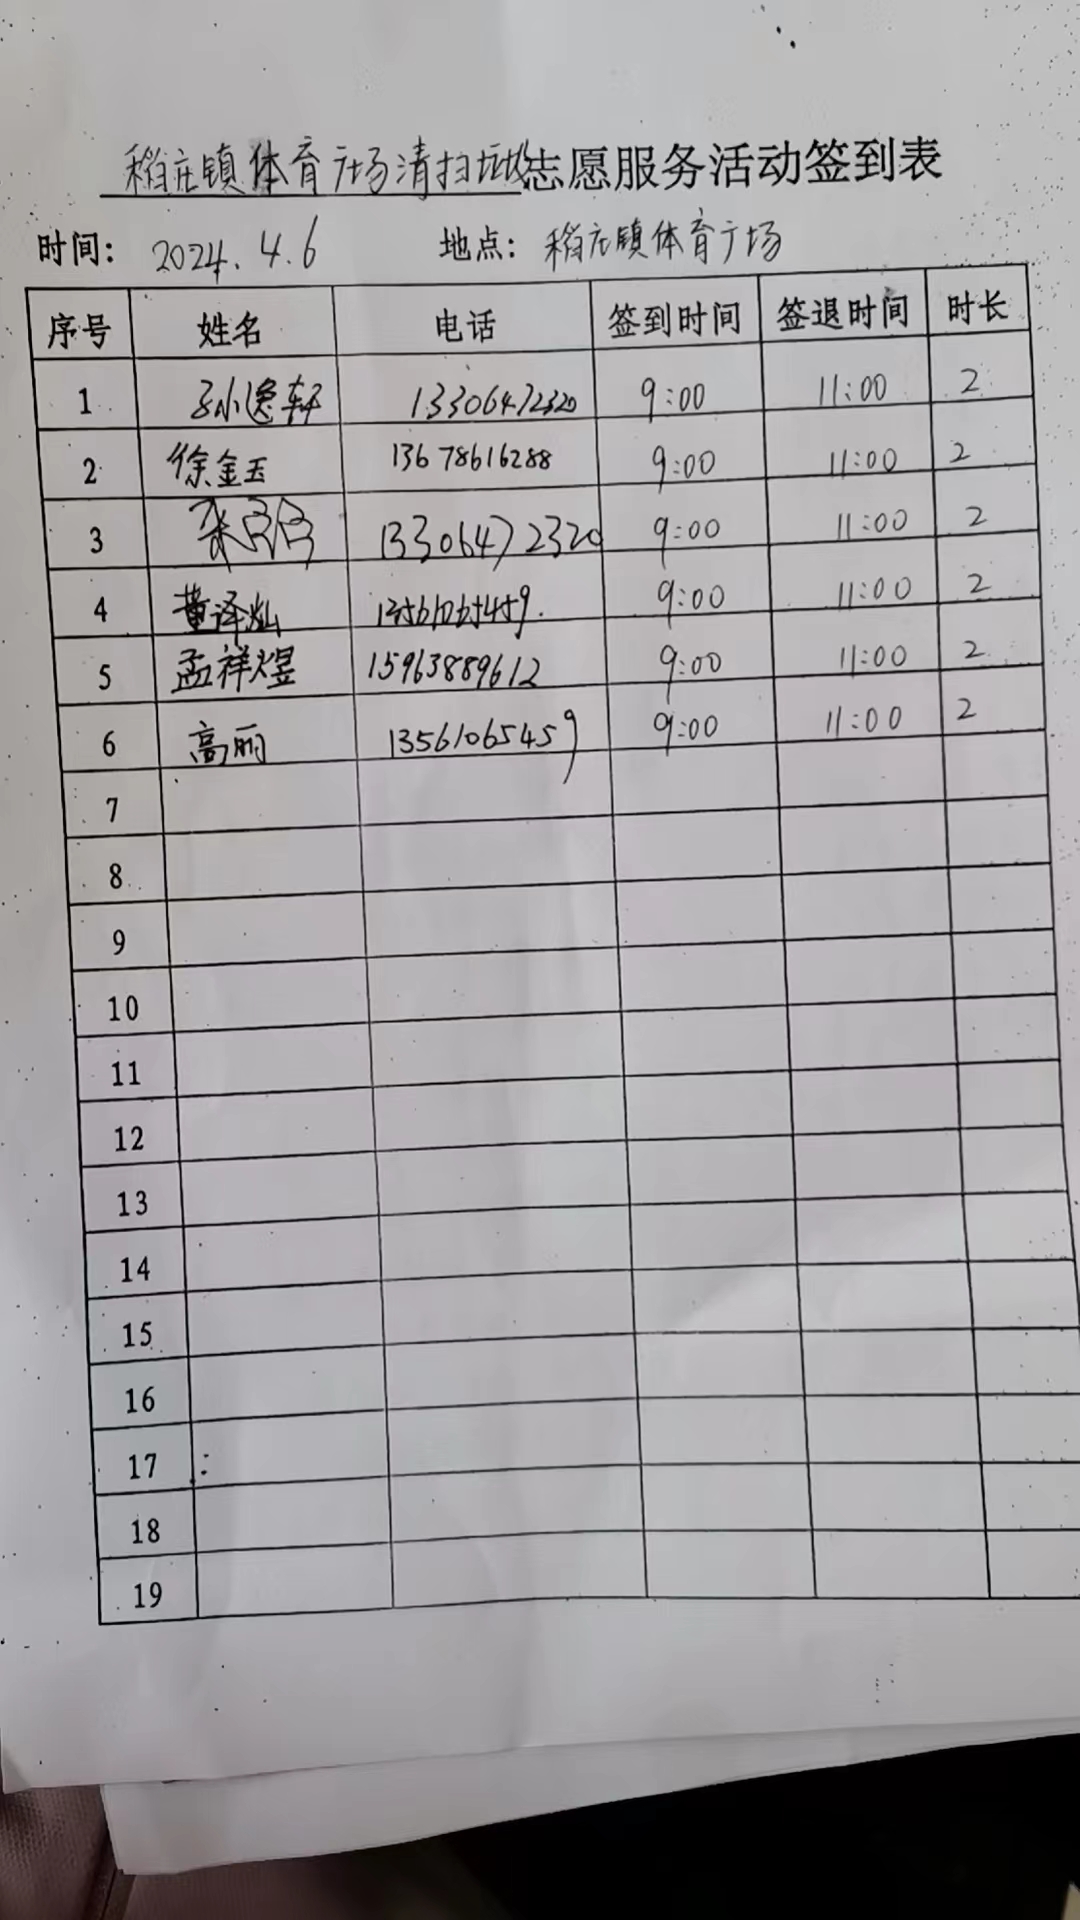 稻庄镇体育广场清扫垃圾志愿服务活动签到表
时间: 2024.4.6 地点: 稻庄镇体育广场
序号 姓名 电话 签到时间 签退时间 时长
1 孙逸轩 13306472320 9:00 11:00 2
2 徐金玉 13678616288 9:00 11:00 2
3 13306472320 9:00 11:00 2
4 董泽灿 9:00 11:00 2
5 孟祥煜 15963889612 9:00 11:00 2
6 高丽 13561065459 9:00 11:00 2
7
8
9
10
11
12
13
14
15
16
17
18
19